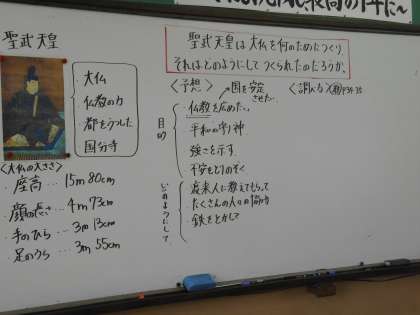 聖武天皇
・大仏
・仏教の力
・都をうつした
・国分寺
<大仏の大きさ>
・座高…15m80cm
・顔の長さ…4m73cm
・手のひら…3m13cm
・足のうら…3m55cm
聖武天皇は大仏を何のためにつくり、
それはどのようにしてつくられたのだろうか。
<予想>
国を安定
させた。
<調べる>
目的
・仏教を広めた。
・平和の守り神
・強さを示す。
・不安をとりのぞく。
どのようにして
・渡来人に教えてもらって
・たくさんの人々の協力
・鉄をとかして